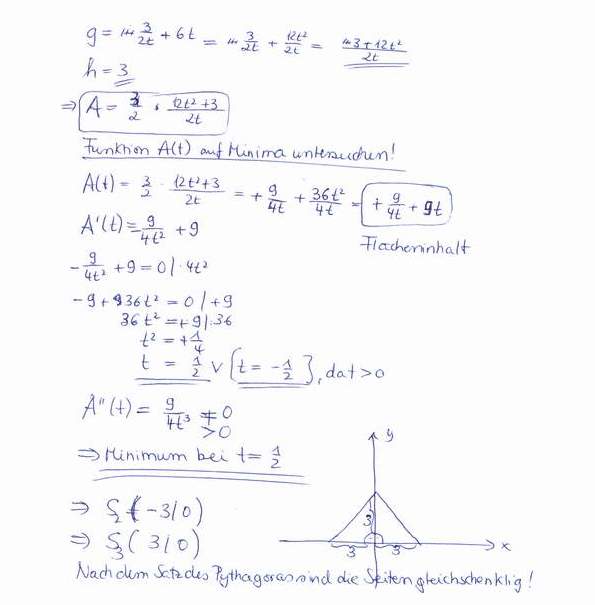 g = 3/2t + 6t = 3/2t + 12t²/2t = 3+12t²/2t
h = 3
⇒ A = 3/2 · 12t²+3/2t
Funktion A(t) auf Minima untersuchen!
A(t) = 3/2 · 12t²+3/2t = + 9/4t + 36t²/4t = + 9/4t + 9t
A'(t) = 9/4t² + 9
Flächeninhalt
- 9/4t² + 9 = 0 | · 4t²
-9 + 36t² = 0 | +9
36t² = +9 | :36
t² = + 1/4
t = 1/2 ∨ [t = - 1/2], da t > 0
A''(t) = 9/4t³ ≠ 0
> 0
⇒ Minimum bei t = 1/2
y
⇒ S₂ (-3|0)
3
⇒ S₃ (3|0)
3 3 x
Nach dem Satz des Pythagoras sind die Seiten gleichschenklig!